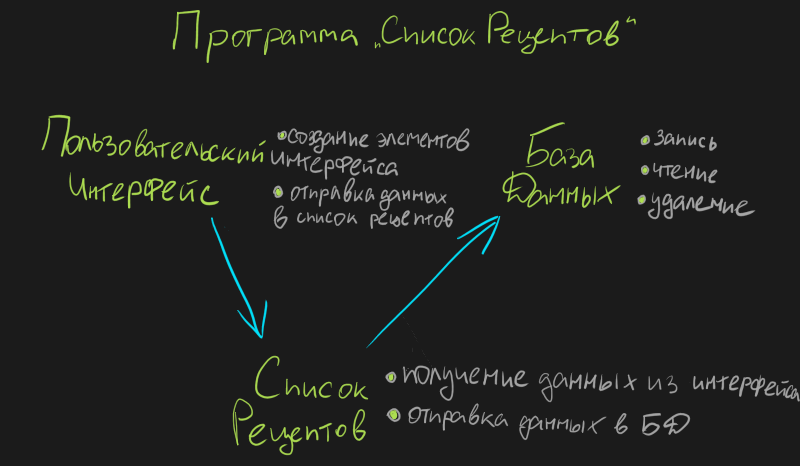 Программа „Список Рецептов"
Пользовательский
Интерфейс
• создание элементов
интерфейса
• отправка данных
в список рецептов
База
Данных
• запись
• чтение
• удаление
Список
Рецептов
• получение данных из интерфейса
• отправка данных в БД